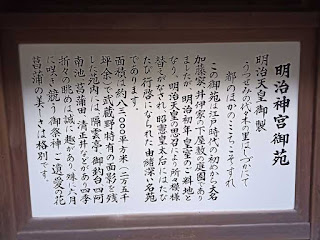 明治神宮御苑
明治天皇御製
うつせみの代々木の里はしづかにて
都のほかのここちこそすれ
この御苑は江戸時代の初めから大名
加藤家、井伊家の下屋敷の庭園であり
ましたが、明治初年皇室の御料地と
なり、明治天皇の思召により所々模様
替えがなされ、昭憲皇太后にはたび
たび行啓になられた由緒深い名苑
であります。
面積は約八三,〇〇〇平方米(二万五千
坪余)で武蔵野特有の面影を残
した苑内には隔雲亭、御釣台、四阿
南池、菖蒲田、清正井などがあり四季
折々の眺めは誠に趣があり、殊に六月
に咲き競う御祭神ご遺愛の花
菖蒲の美しさは格別です。